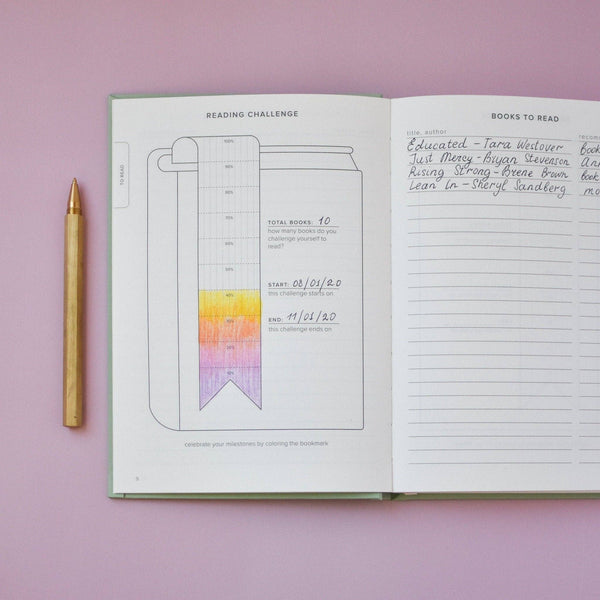 READING CHALLENGE
TO READ
100%
90%
80%
70%
60%
50%
40%
30%
20%
10%
TOTAL BOOKS: 10
how many books do you
challenge yourself to
read?
START: 08/01/20
this challenge starts on
END: 11/01/20
this challenge ends on
celebrate your milestones by coloring the bookmark
BOOKS TO READ
title, author
Educated - Tara Weslover
Just Mercy - Bryan Stevenson
Rising Strong - Brene Brown
Lean In - Sheryl Sandberg